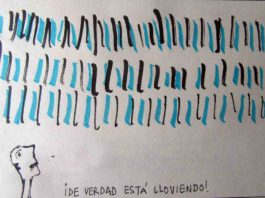 ¡DE VERDAD ESTÁ LLOVIENDO!